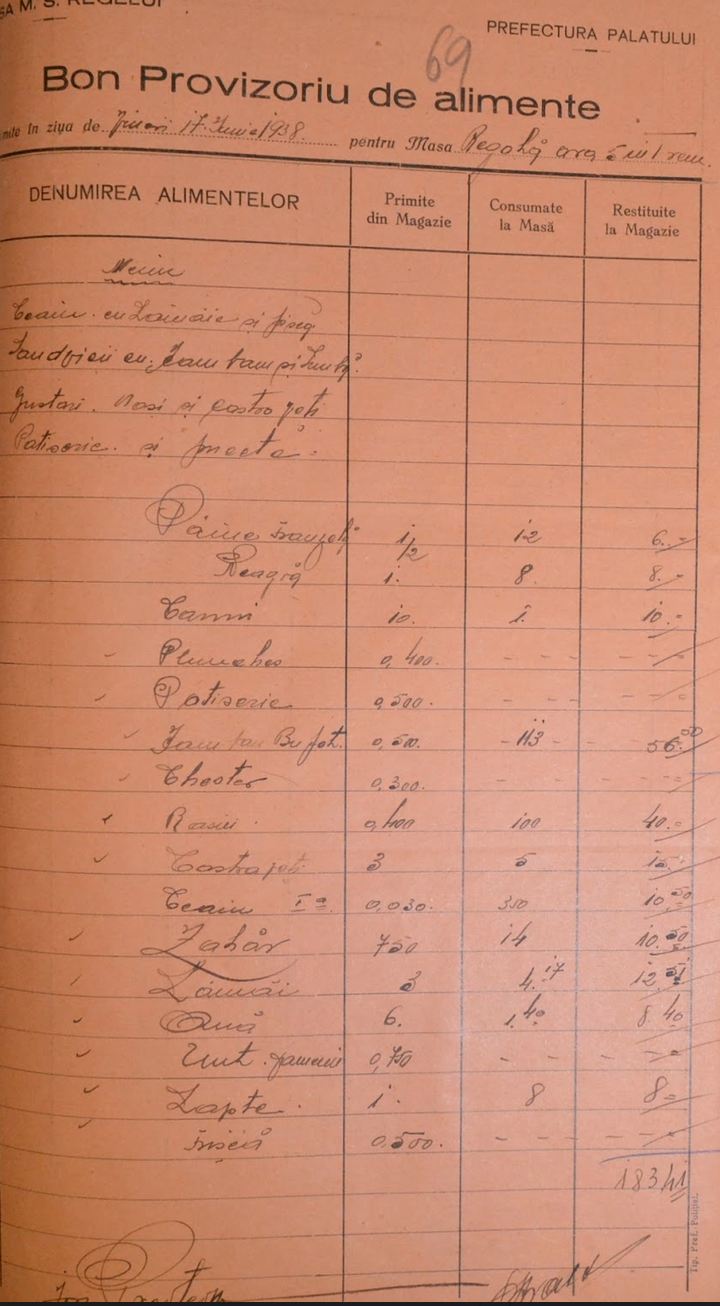 SA M. S. REGELUI
PREFECTURA PALATULUI
69
Bon Provizoriu de alimente
mite în ziua de Vineri 17. Iunie 1938. pentru Masa Regală ora 5
DENUMIREA ALIMENTELOR Primite din Magazie Consumate la Masă Restituite la Magazie
Meniu
Ceaiu. cu Lămâie și
cu. Jambam și
Gustări. Rosi și Castraveți
Patiserie. și
Pâine 1/2 12 6.-
Neagră 1. 8. 8.-
10. 1. 10.-
0,400. - - - -
Patiserie 0,500. - - - -
0,500. - 113 - 56.50
Chester 0,300. - - - -
Rosii. 0,400 100 40.-
Castraveți 3 5 15.-
Ceaiu I a 0,030. 350 10.50
Zahăr 750 14 10.50
Lămâi 3 4.17 12.51
Ouă 6. 1.40 8 40
Unt. 0,750 - - - -
Lapte. 1. 8 8=
0,500. - - - -
183 41
Tip. Pref. Poliției.